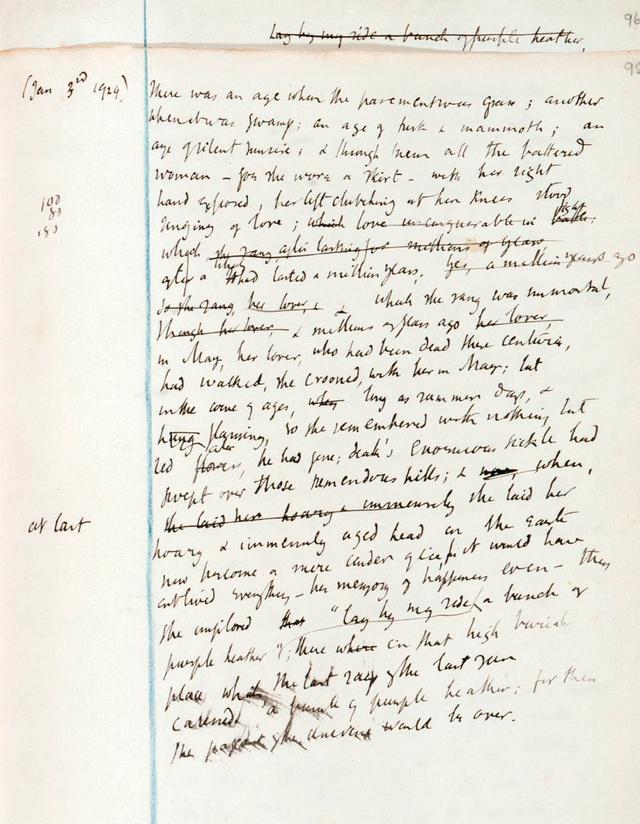 96
Lay by my side a bunch of purple heather,
95
(Jan 3rd 1924)
There was an age when the pavement was grass; another
when it was swamp; an age of tusk & mammoth; an
age of silent sunrise; & through them all the battered
woman - for she wore a skirt - with her right
hand exposed, her left clutching at her knees stood
100
80
180
singing of love; which love unconquerable in battle,
which she sang after lasting for millions of years,
after a had lasted a million years, yes, a million years ago
so she sang, her lover, & & which she sang was immortal,
Though her lover, & millions of years ago her lover,
in May, her lover, who had been dead these centuries,
had walked, she crooned, with her in May; but
in the course of ages, when long as summer days, &
flaming, so she remembered with nothing but
red flowers, he had gone; death's enormous sickle had
swept over those tremendous hills; & now, when,
at last
she laid her hoary & immensely she laid her
hoary & immensely aged head on the earth
now become a mere cinder of ice, it would have
outlived everything - her memory of happiness even - then
she implored that "lay by my side a bunch of
purple heather"; there where on that high burial
place which the last ray of the last sun
caressed a bunch of purple heather; for then
the pageant of the universe would be over.